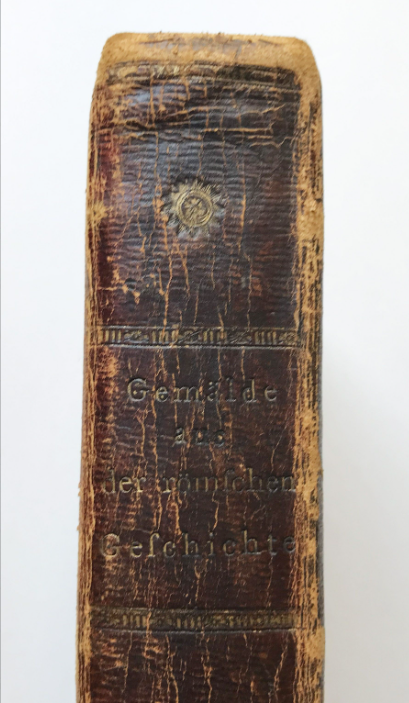 Gemälde
aus
der römiſchen
Geſchichte